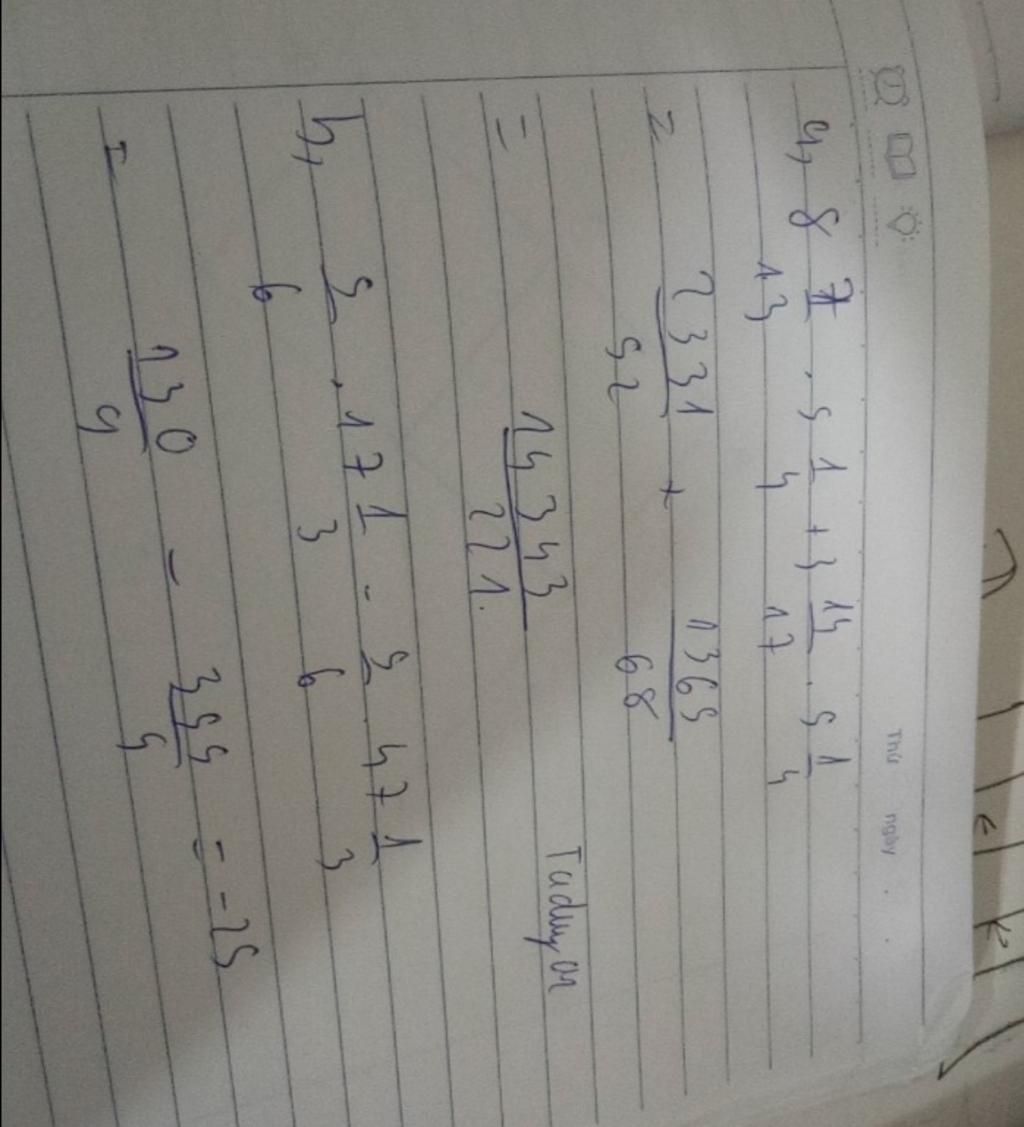 Thứ ngày
a, 8 7/13 . 5 1/4 + 3 14/17 . 5 1/4
= 2331/52 + 1365/68
= 14343/221.
b, 5/6 . 17 1/3 - 5/6 . 47 1/3
= 130/9 - 355/9 = -25